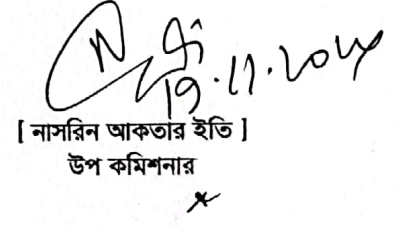 19.11.2024
[ নাসরিন আকতার ইতি ]
উপ কমিশনার